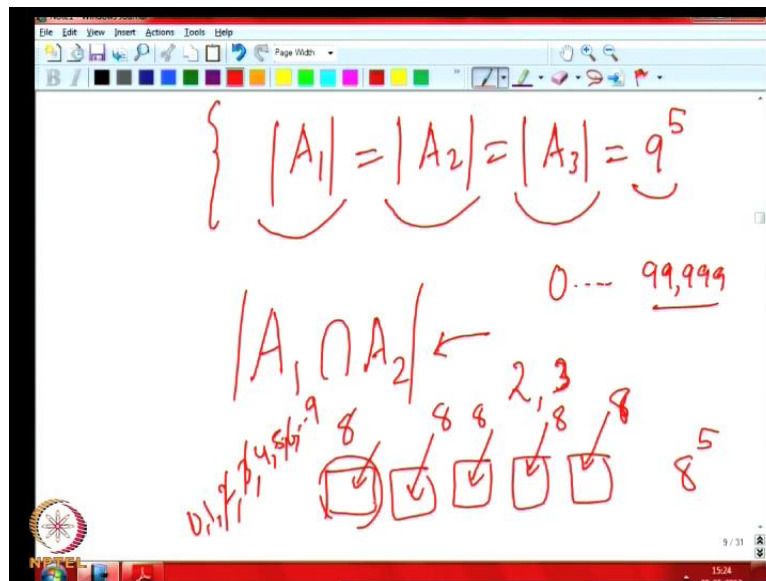 File Edit View Insert Actions Tools Help
Page Width
B I
|A₁| = |A₂| = |A₃| = 9⁵
0 .... 99,999
|A₁ ∩ A₂| ←
2, 3
0,1,2,3,4,5,6,..9 8 8 8 8 8
8⁵
9 / 31
NPTEL
15:24